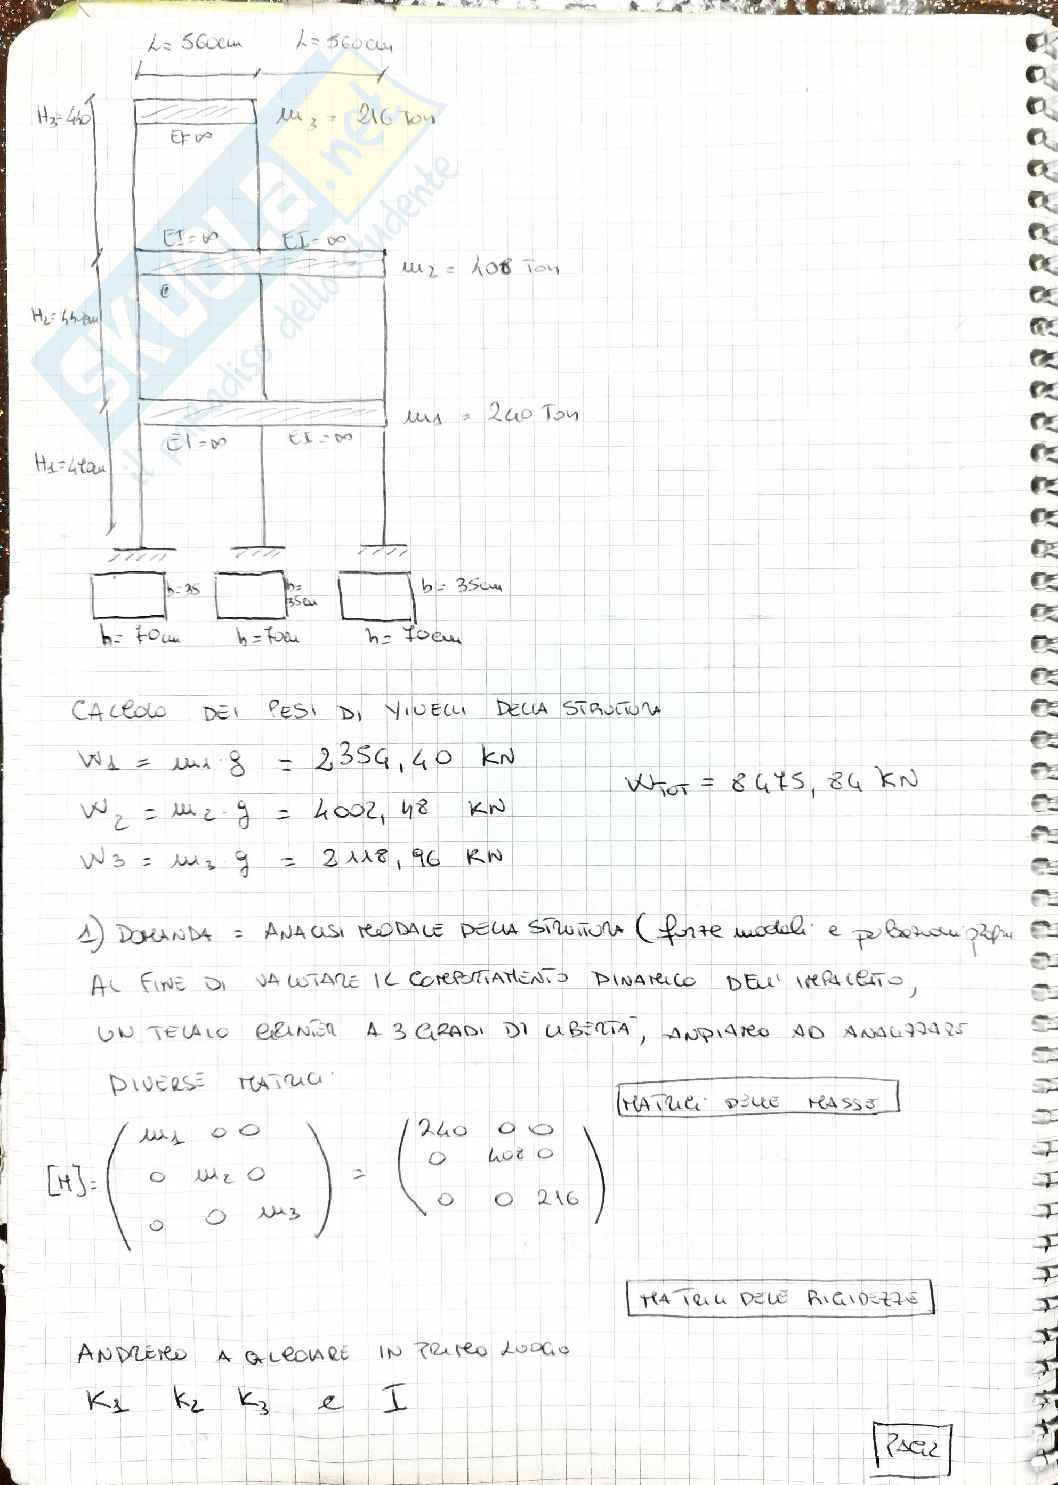 L= 560cm L= 560cm
H3=440
m3 = 216 Ton
EI=∞
EI=∞ EI=∞
m2 = 408 Ton
e
H2=440cm
m1 = 240 Ton
EI=∞ EI=∞
H1=470cm
SKUOLA.net
il paradiso dello studente
b=35 b= 35cm b= 35cm
h= 70cm h=70cm h= 70cm
CALCOLO DEI PESI DI LIVELLI DELLA STRUTTURA
W1 = m1 · g = 2354,40 KN
WTOT = 8475,84 KN
W2 = m2 · g = 4002,48 KN
W3 = m3 g = 2118,96 KN
1) DOMANDA = ANALISI MODALE DELLA STRUTTURA ( forze modali e pulsazioni
AL FINE DI VALUTARE IL COMPORTAMENTO DINAMICO DELL'
UN TELAIO GRINTER A 3 GRADI DI LIBERTÀ, ANDIAMO AD ANALIZZARE
DIVERSE MATRICI
MATRICI DELLE MASSE
[M]= ( m1 0 0 ) = ( 240 0 0 )
0 m2 0 0 408 0
0 0 m3 0 0 216
MATRICI DELLE RIGIDEZZE
ANDREMO A CALCOLARE IN PRIMO LUOGO
K1 K2 K3 e I
PAG2